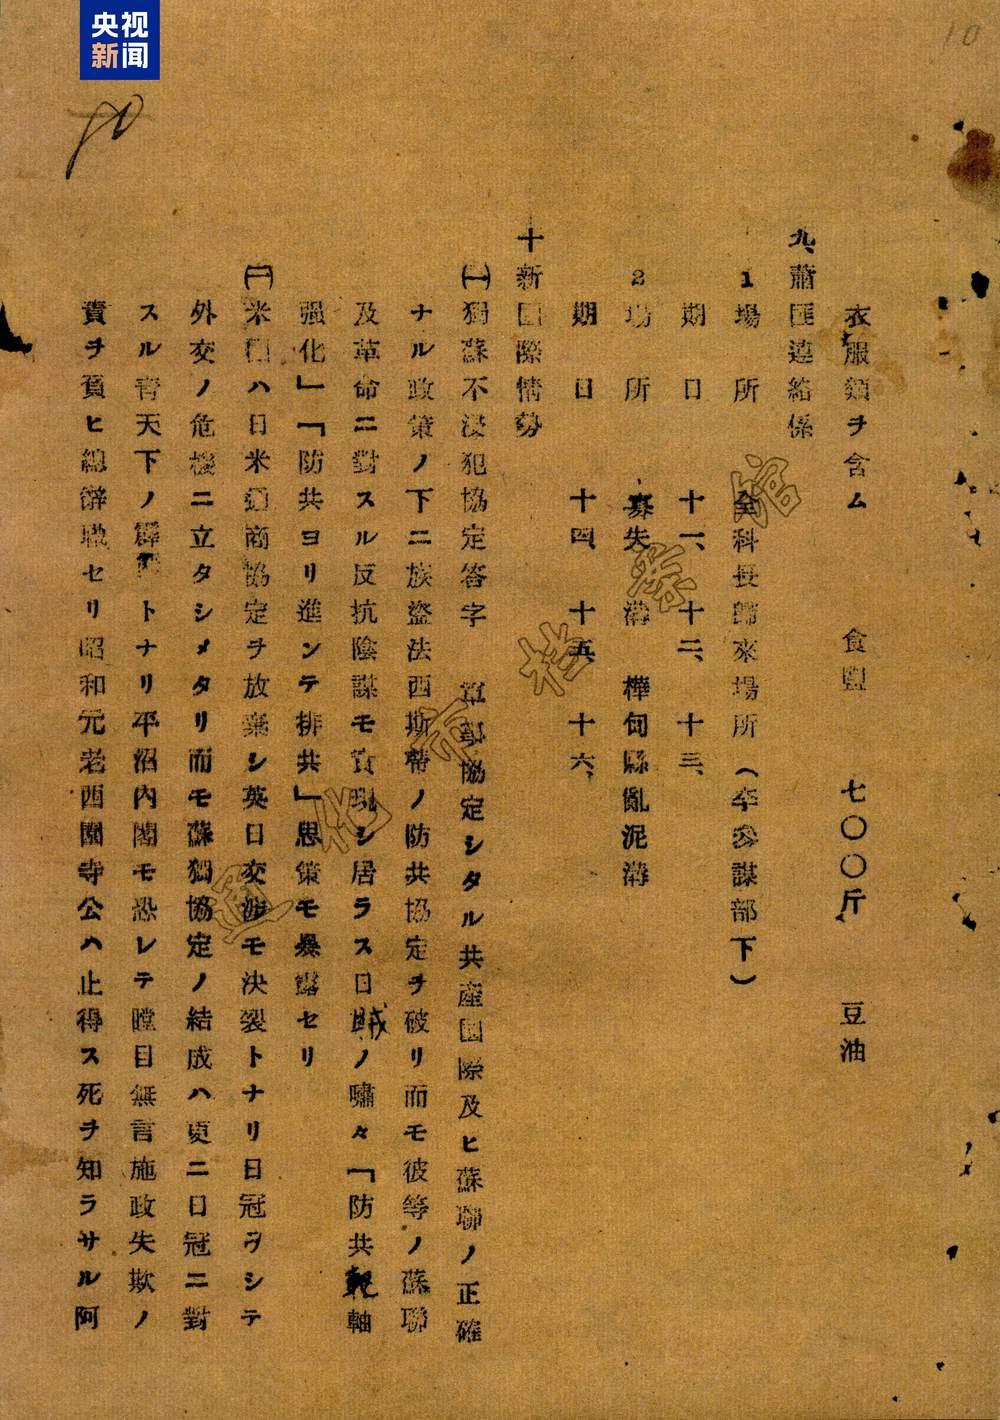 央视
新闻
10
衣服類ヲ含ム 食鹽 七〇〇斤 豆油
九、蕭匪連絡係
1場所 全科長歸來場所（卒參謀部下）
期日 十一、十二、十三、
2場所 寡失溝 樺甸縣亂泥溝
期日 十四、十五、十六、
十新國際情勢
㈠獨蘇不浸犯協定答字 軍事協定シタル共產國際及ヒ蘇聯ノ正確
ナル政策ノ下ニ族盜法西斯幇ノ防共協定ヲ破リ而モ彼等ノ蘇聯
及革命ニ對スル反抗陰謀モ實現シ居ラス日賊ノ嘯々「防共範軸
强化」「防共ヨリ進ンテ排共」思策モ暴露セリ
㈡米國ハ日米通商協定ヲ放棄シ英日交渉モ決裂トナリ日冠ヲシテ
外交ノ危機ニ立タシメタリ而モ蘇獨協定ノ結成ハ更ニ日冠ニ對
スル青天下ノ霹靂トナリ平沼內閣モ恐レテ瞠目無言施政失欺ノ
責ヲ負ヒ總辭職セリ昭和元老西園寺公ハ止得ス死ヲ知ラサル阿
通化市档案馆